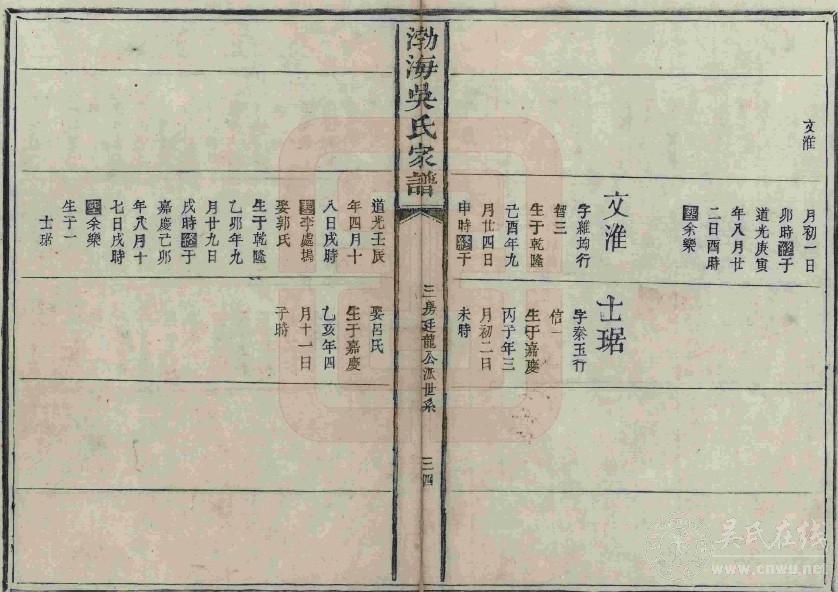 文淮
月初一日
卯時終于
道光庚寅
年八月廿
二日酉時
塟余樂
文淮
字維均行
智三
生于乾隆
己酉年九
月廿四日
申時終于
士琚
字秦玉行
信一
生于嘉慶
丙子年三
月初二日
未時
渤海吳氏家譜
三房廷龍公派世系
三四
道光壬辰
年四月十
八日戌時
塟李處塢
娶郭氏
生于乾隆
乙卯年九
月廿九日
戌時終于
嘉慶己卯
年八月十
七日戌時
塟余樂
生子一
士琚
娶呂氏
生于嘉慶
乙亥年四
月十一日
子時
吴氏在线
www.cnwu.net